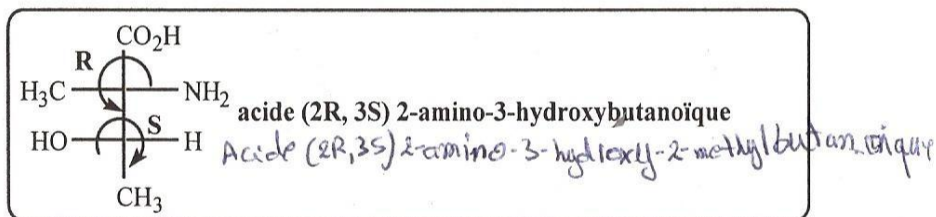 CO₂H
R
H₃C NH₂
acide (2R, 3S) 2-amino-3-hydroxybutanoïque
S
HO H
Acide (2R,3S) 2-amino-3-hydroxy-2-methylbutanoïque
CH₃